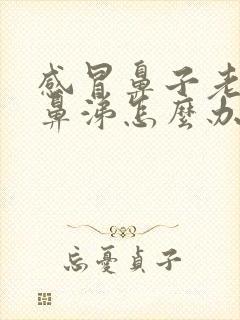 感冒鼻子老
鼻涕怎麼办
忘憂貞子